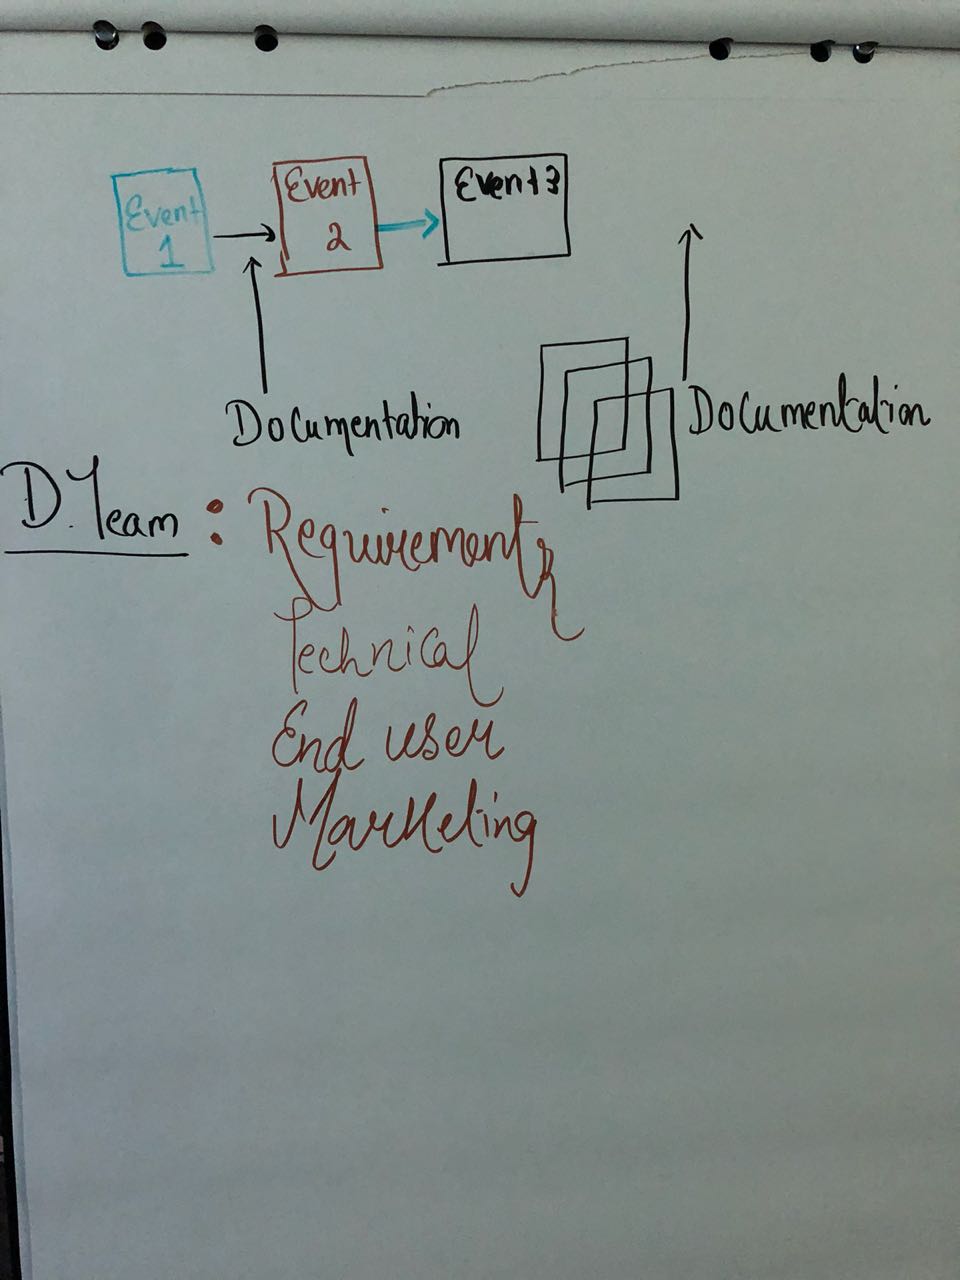 Event 1
Event 2
Event 3
Documentation
Documentation
D. Team : Requirements
Technical
End user
Marketing